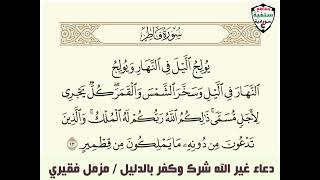 سُورَةُ فَاطِرٍ
يُولِجُ الَّيْلَ فِى النَّهَارِ وَيُولِجُ
النَّهَارَ فِى الَّيْلِ وَسَخَّرَ الشَّمْسَ وَالْقَمَرَ كُلٌّ يَجْرِى
لِأَجَلٍ مُّسَمًّى ذَٰلِكُمُ اللَّهُ رَبُّكُمْ لَهُ الْمُلْكُ وَالَّذِينَ
تَدْعُونَ مِن دُونِهِ مَا يَمْلِكُونَ مِن قِطْمِيرٍ ١٣
دعاء غير الله شرك وكفر بالدليل / مزمل فقيري